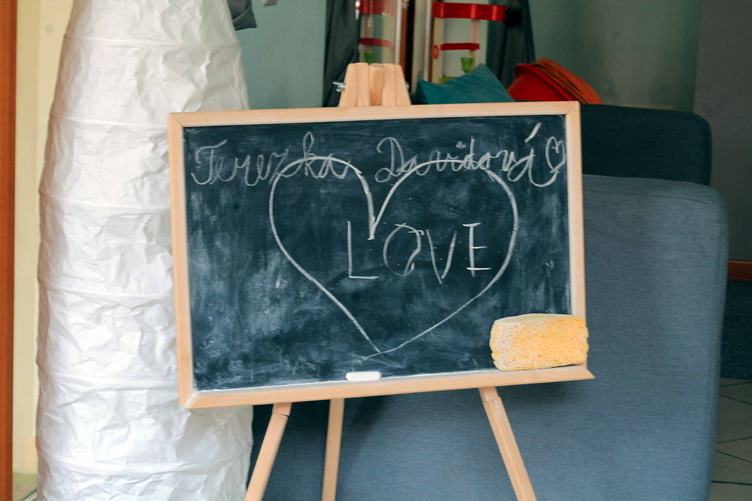 Terezka Davidová
LOVE